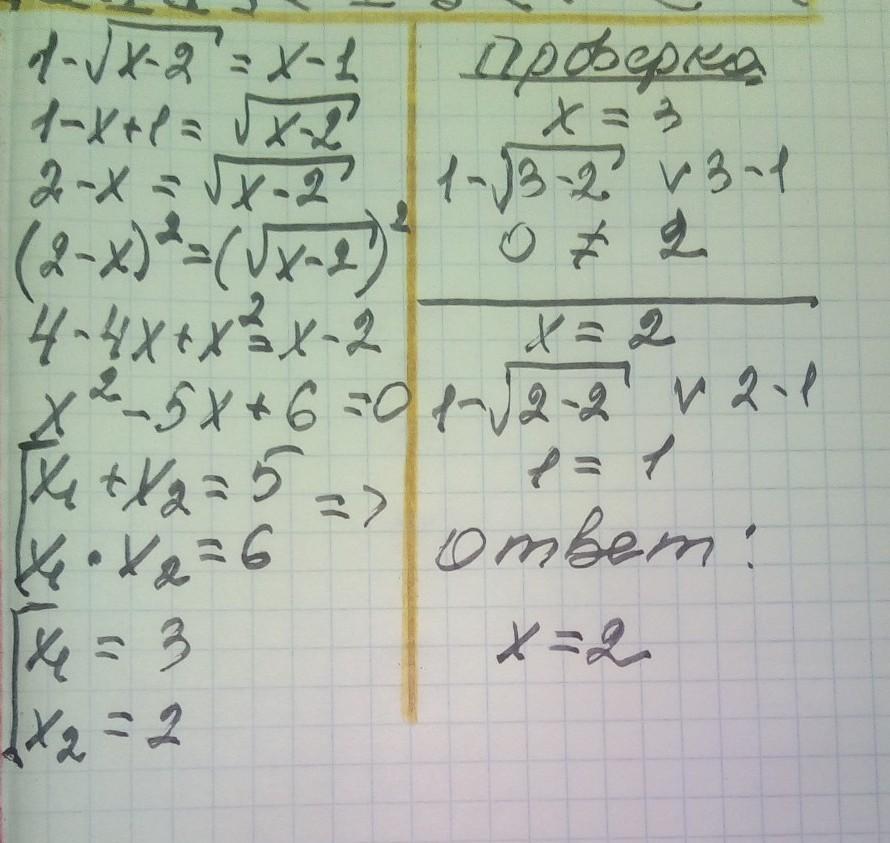 1-√(x-2) = x-1
1-x+1 = √(x-2)
2-x = √(x-2)
(2-x)² = (√(x-2))²
4-4x+x² = x-2
x²-5x+6=0
[x₁+x₂=5 =>
x₁·x₂=6
[x₁=3
x₂=2
Проверка
x=3
1-√(3-2) ∨ 3-1
0 ≠ 2
x=2
1-√(2-2) ∨ 2-1
1=1
Ответ:
x=2